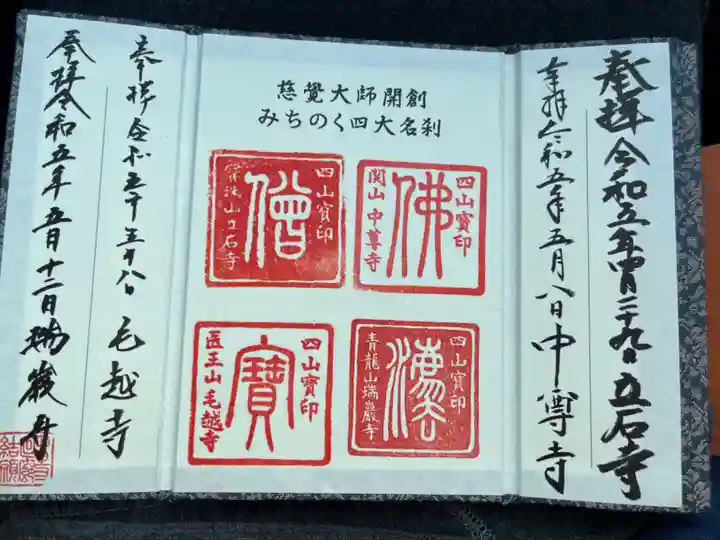 奉拝 令和五年四月二十九日 立石寺
奉拝 令和五年五月八日 中尊寺
慈覺大師開創
みちのく四大名刹
四山寳印
佛
関山 中尊寺
四山寳印
僧
寳珠山立石寺
四山寳印
法
青龍山瑞巖寺
四山寳印
寳
医王山 毛越寺
奉拝 令和五年五月八日 毛越寺
奉拝 令和五年五月十二日 瑞巖寺
四山
結願